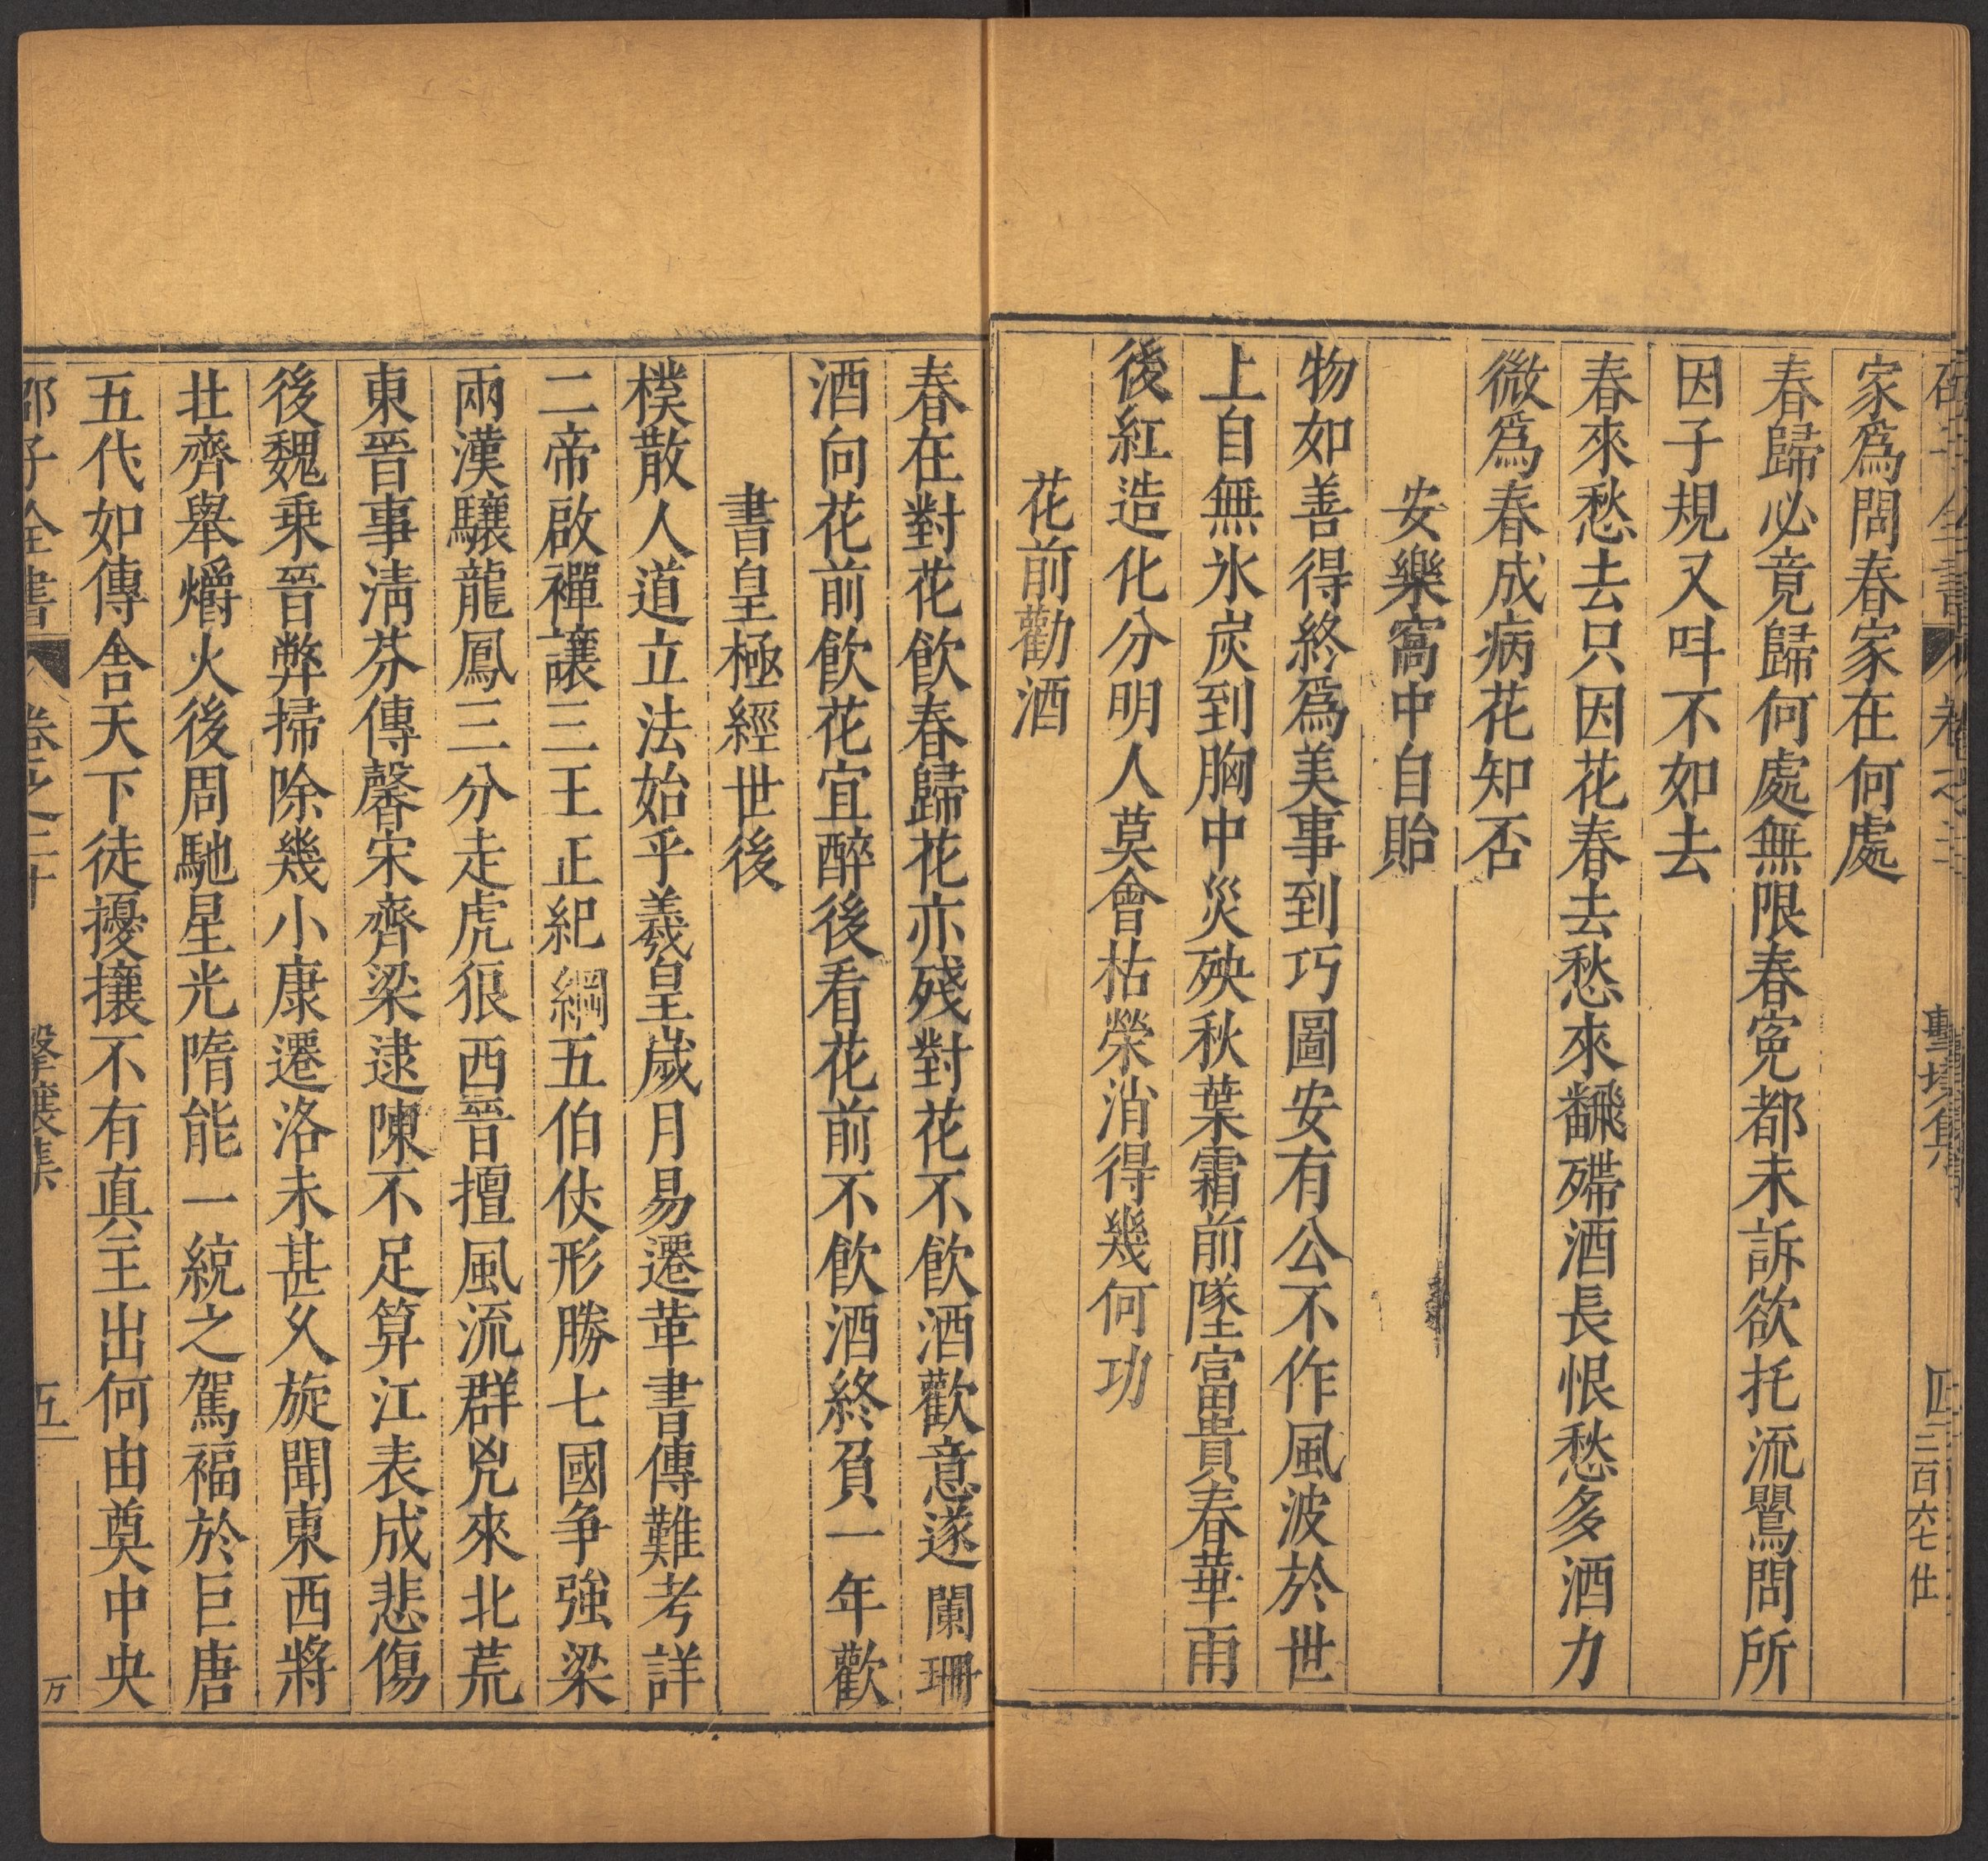 家爲問春家在何處
春歸必竟歸何處無限春寃都未訴欲托流鶯問所
因子規又呌不如去
春來愁去只因花春去愁來翻殢酒長恨愁多酒力
微爲春成病花知否
安樂窩中自貽
物如善得終爲美事到巧圖安有公不作風波於世
上自無氷炭到胸中災殃秋葉霜前墜富貴春華雨
後紅造化分明人莫會枯榮消得幾何功
花前勸酒
春在對花飲春歸花亦殘對花不飲酒歡意遂闌珊
酒向花前飲花宜醉後看花前不飲酒終負一年歡
書皇極經世後
樸散人道立法始乎羲皇歲月易遷革書傳難考詳
二帝啟禪讓三王正紀綱五伯仗形勝七國爭強梁
兩漢驤龍鳳三分走虎狼西晉擅風流群兇來北荒
東晉事淸芬傳馨宋齊梁逮陳不足算江表成悲傷
後魏乗晉弊掃除幾小康遷洛未甚久旋聞東西將
北齊舉爝火後周馳星光隋能一統之駕福於巨唐
五代如傳舍天下徒擾攘不有真主出何由奠中央
邵子全書 卷之二十 擊壤集 五 万